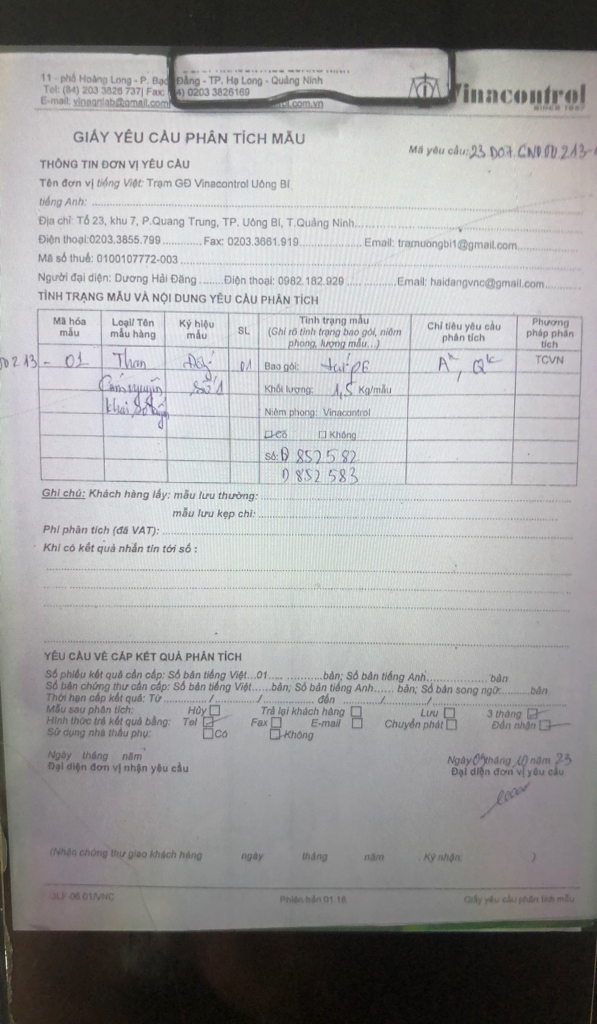 11 - phố Hoàng Long - P. Bạch Đằng - TP. Hạ Long - Quảng Ninh
Tel: (84) 203 3826 737| Fax: (84) 0203 3826169
E-mail: vinaqnlab@gmail.com
Vinacontrol
SINCE 1957
GIẤY YÊU CẦU PHÂN TÍCH MẪU
Mã yêu cầu: 23 D07.CND00213-
THÔNG TIN ĐƠN VỊ YÊU CẦU
Tên đơn vị tiếng Việt: Trạm GĐ Vinacontrol Uông Bí
tiếng Anh:
Địa chỉ: Tổ 23, khu 7, P.Quang Trung, TP. Uông Bí, T.Quảng Ninh
Điện thoại:0203.3855.799 Fax: 0203.3661.919 Email: tramuongbi1@gmail.com
Mã số thuế: 0100107772-003
Người đại diện: Dương Hải Đăng Điện thoại: 0982.182.929 Email: haidangvnc@gmail.com
TÌNH TRẠNG MẪU VÀ NỘI DUNG YÊU CẦU PHÂN TÍCH
Mã hóa mẫu Loại/ Tên mẫu hàng Ký hiệu mẫu SL Tình trạng mẫu (Ghi rõ tình trạng bao gói, niêm phong, lượng mẫu...) Chỉ tiêu yêu cầu phân tích Phương pháp phân tích
00213 - 01 Than 01 Bao gói: túi PE Aᵏ, Qᵏ TCVN
Cám nguyên số 1 Khối lượng: 1,5 Kg/mẫu
khai Niêm phong: Vinacontrol
Có Không
Số: D 852582
D 852583
Ghi chú: Khách hàng lấy: mẫu lưu thường:
mẫu lưu kẹp chì:
Phí phân tích (đã VAT):
Khi có kết quả nhắn tin tới số :
YÊU CẦU VỀ CẤP KẾT QUẢ PHÂN TÍCH
Số phiếu kết quả cần cấp: Số bản tiếng Việt...01 bản; Số bản tiếng Anh bản
Số bản chứng thư cần cấp: Số bản tiếng Việt bản; Số bản tiếng Anh bản; Số bản song ngữ bản
Thời hạn cấp kết quả: Từ / / đến / /
Mẫu sau phân tích: Hủy Trả lại khách hàng Lưu 3 tháng
Hình thức trả kết quả bằng: Tel Fax E-mail Chuyển phát Đến nhận
Sử dụng nhà thầu phụ: Có Không
Ngày tháng năm
Đại diện đơn vị nhận yêu cầu
Ngày 04 tháng 10 năm 23
Đại diện đơn vị yêu cầu
(Nhận chứng thư giao khách hàng ngày tháng năm Ký nhận: )
Phiên bản 01.16
Giấy yêu cầu phân tích mẫu